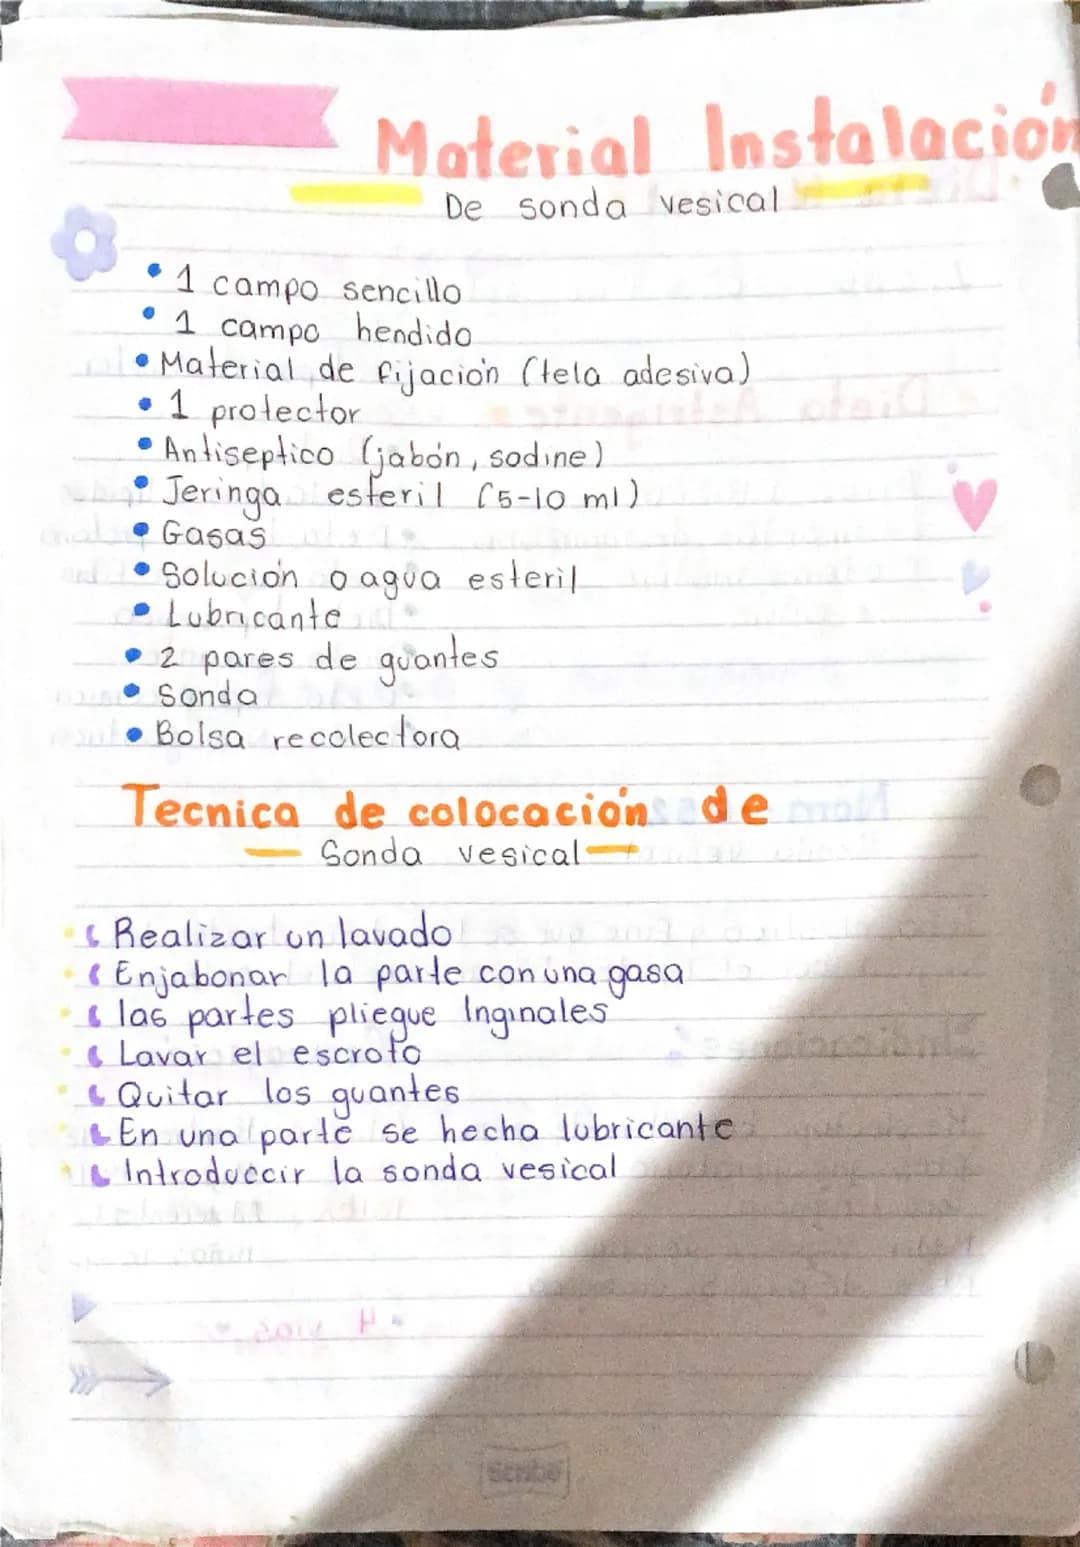 Material Instalación
De sonda vesical
• 1 campo sencillo
• 1 campo hendido
• Material de fijación (tela adesiva)
• 1 protector
• Antiseptico (jabón, sodine)
• Jeringa esteril (5-10 ml)
• Gasas
• Solución o agua esteril
• Lubricante
• 2 pares de guantes
• Sonda
• Bolsa recolectora
Tecnica de colocación de
Sonda vesical
Realizar un lavado
Enjabonar la parte con una gasa
las partes pliegue Inginales
Lavar el escroto
Quitar los guantes
En una parte se hecha lubricante
Introduccir la sonda vesical
Scribe